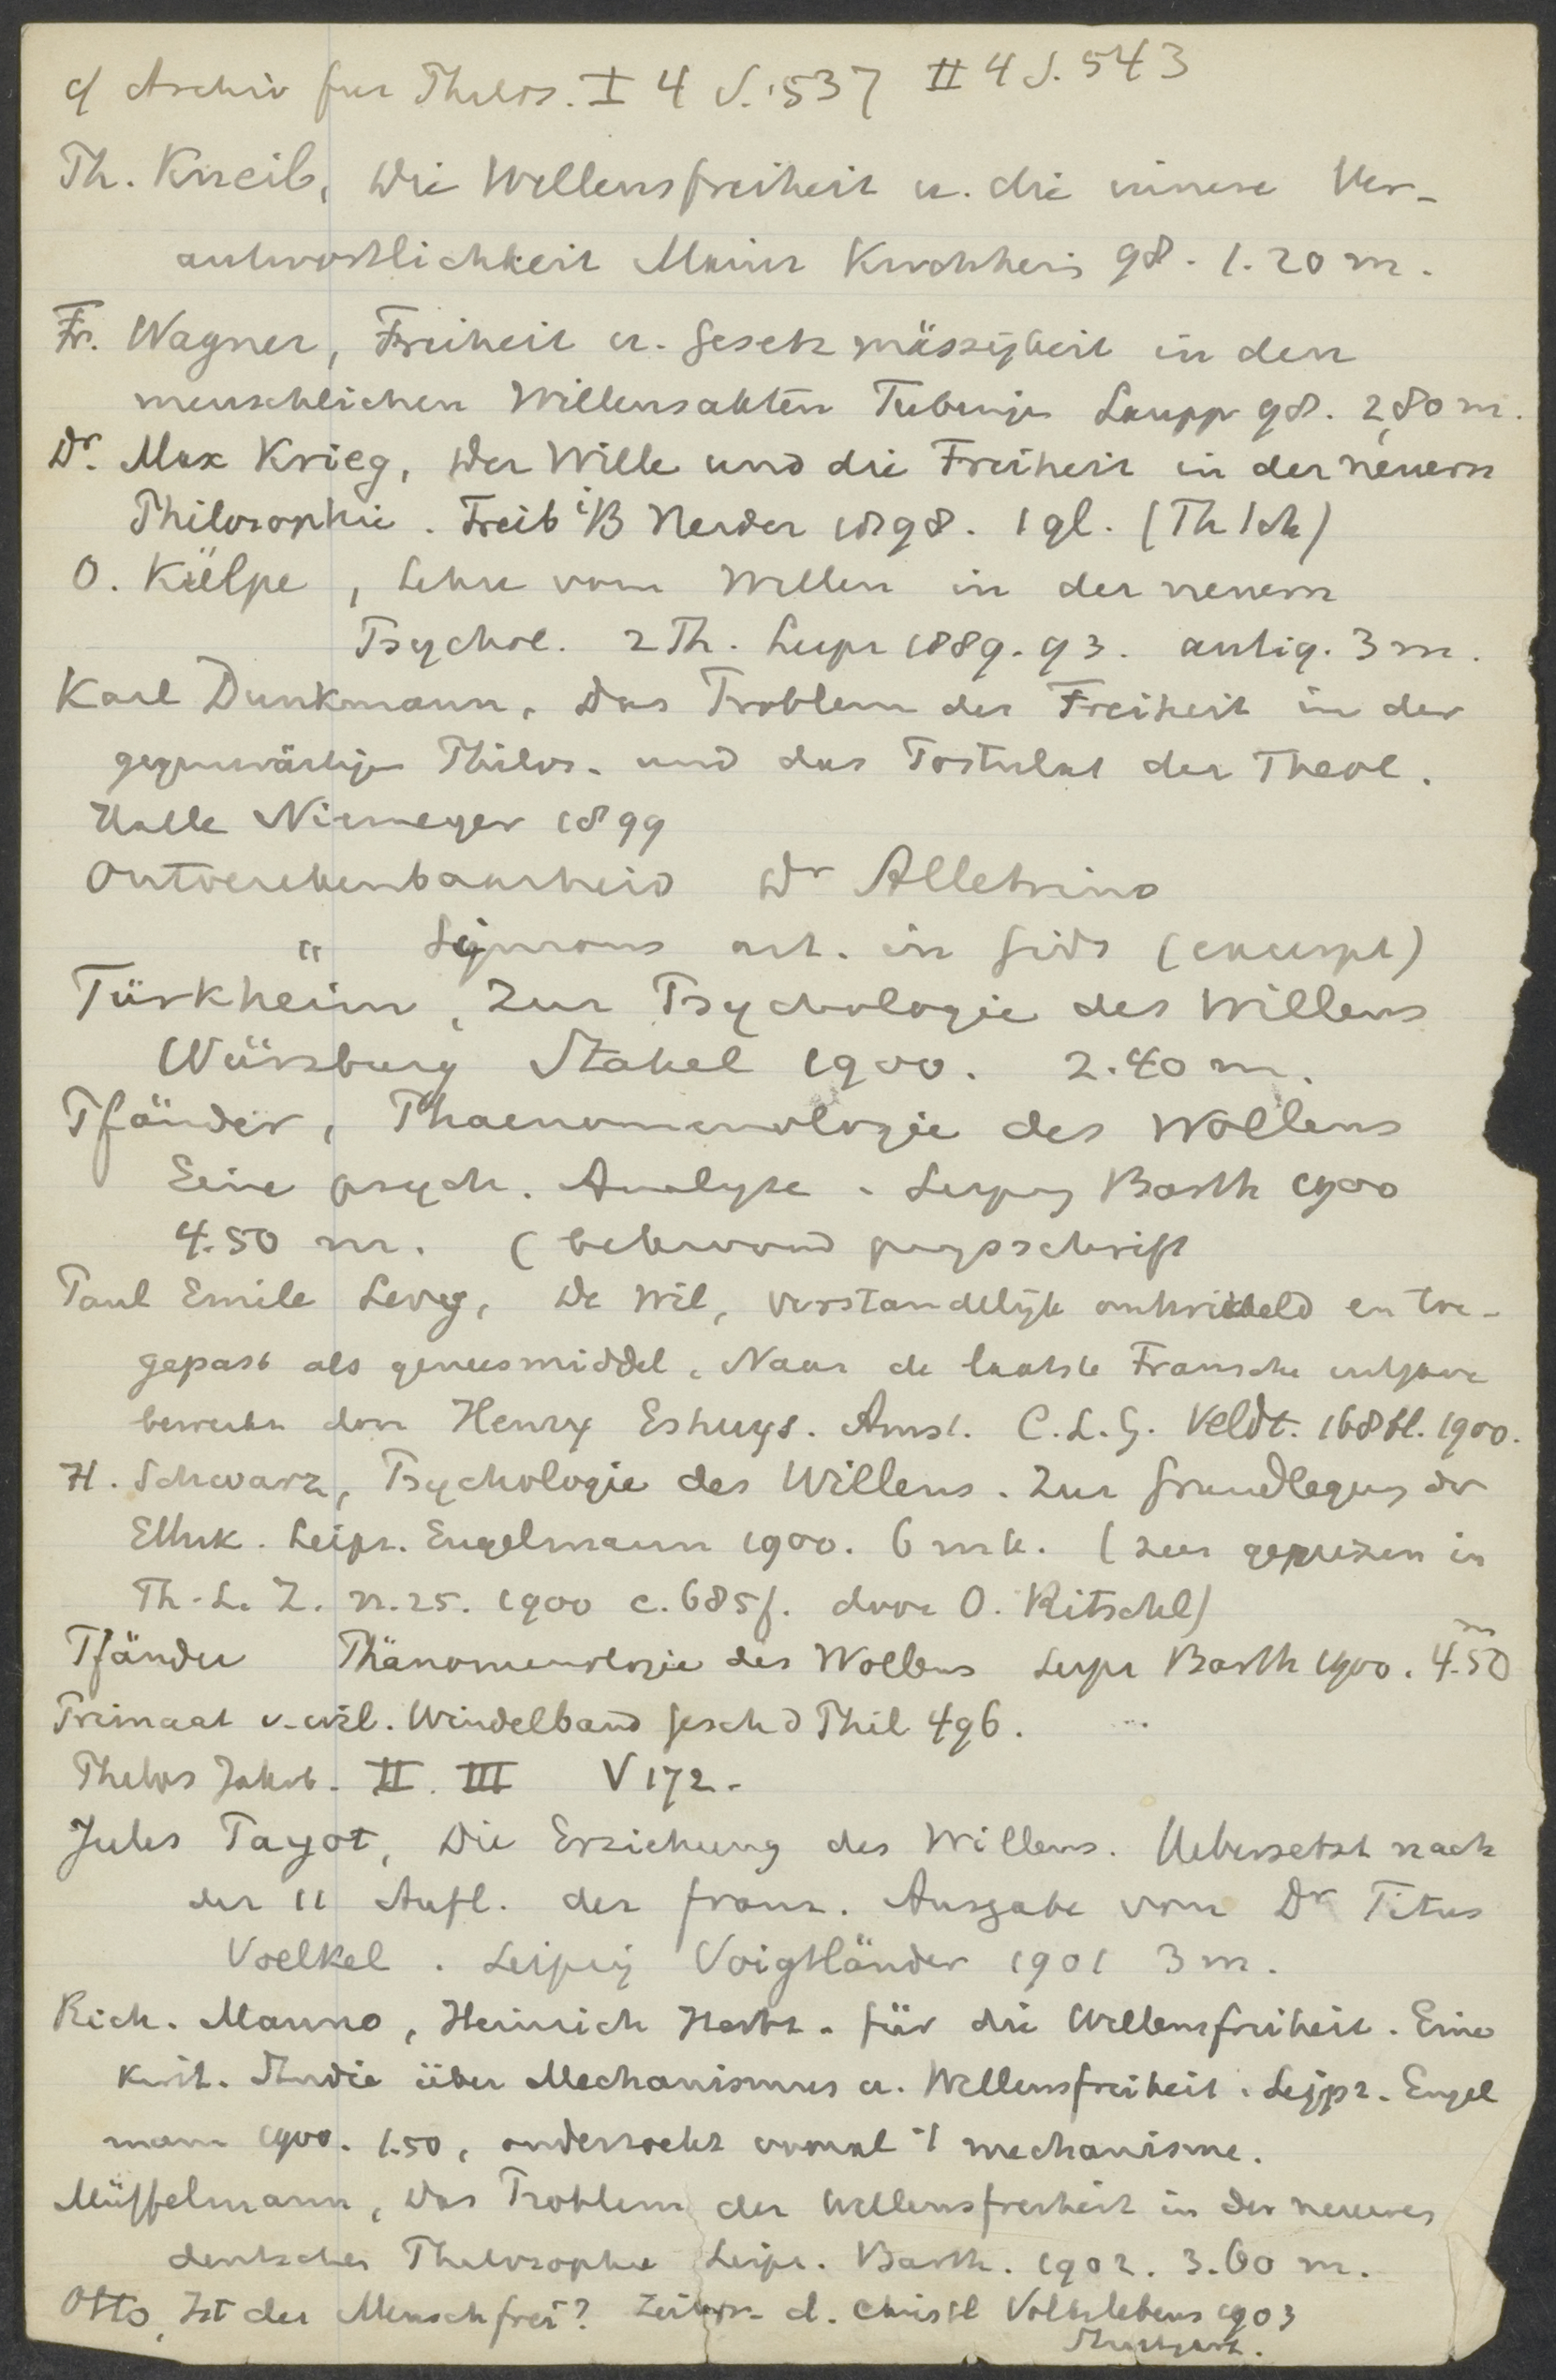 cf Archiv für Philos. I 4 S. 537 II 4 S. 543
Th. Kneib, Die Willensfreiheit u. die innere Ver-
antwortlichkeit Mainz Kirchheim 98. 1.20 m.
Fr. Wagner, Freiheit u. Gesetzmässigkeit in den
menschlichen Willensakten Tubingen Laupp 98. 2,80 m.
Dr. Max Krieg, Der Wille und die Freiheit in der neuern
Philosophie. Freib i/B Herder 1898. 1 gl. (Th Ich)
O. Külpe, Lehre vom Willen in der neuern
Psychol. 2 Th. Leipz 1889. 93. antiq. 3 m.
Karl Dunkmann, Das Problem der Freiheit in der
gegenwärtigen Philos. und das Postulat der Theol.
Halle Niemeyer 1899
Ontoerekenbaarheid Dr Alletrino
" Sijmons art. in Gids (excerpt)
Türkheim, Zur Psychologie des Willens
Würzburg Stahel 1900. 2.40 m.
Pfänder, Phaenomenologie des Wollens
Eine psych. Analyse. Leipzig Barth 1900
4.50 m. (bekroond prysschrift
Paul Emile Levy, De Wil, verstandelijk ontwikkeld en toe-
gepast als geneesmiddel. Naar de laatste Fransche uitgave
bewerkt door Henry Eshuys. Amst. C.L.G. Veldt. 168 bl. 1900.
H. Schwarz, Psychologie des Willens. Zur Grundlegung der
Ethik. Leipz. Engelmann 1900. 6 mk. (zeer geprezen in
Th. L. Z. n. 25. 1900 c. 685 f. door O. Ritschl)
Pfänder Phänomenologie des Wollens Leipz Barth 1900. 4.50 m
Primaat v. wil. Windelband Gesch d Phil 496.
Philos Jahrb. II. III V 172.
Jules Payot, Die Erziehung des Willens. Uebersetzt nach
der 11 Aufl. der franz. Ausgabe von Dr Titus
Voelkel. Leipzig Voigtländer 1901 3 m.
Rich. Manno, Heinrich Hertz. für die Willensfreiheit. Eine
krit. Studie über Mechanismus u. Willensfreiheit. Leipz. Engel
mann 1900. 1.50, onderzoekt vooral 't mechanisme.
Müffelmann, Das Problem der Willensfreiheit in der neueren
deutschen Philosophie Leipz. Barth. 1902. 3.60 m.
Otto, Ist der Mensch frei? d. christl Volkslebens 1903
Stuttgart.